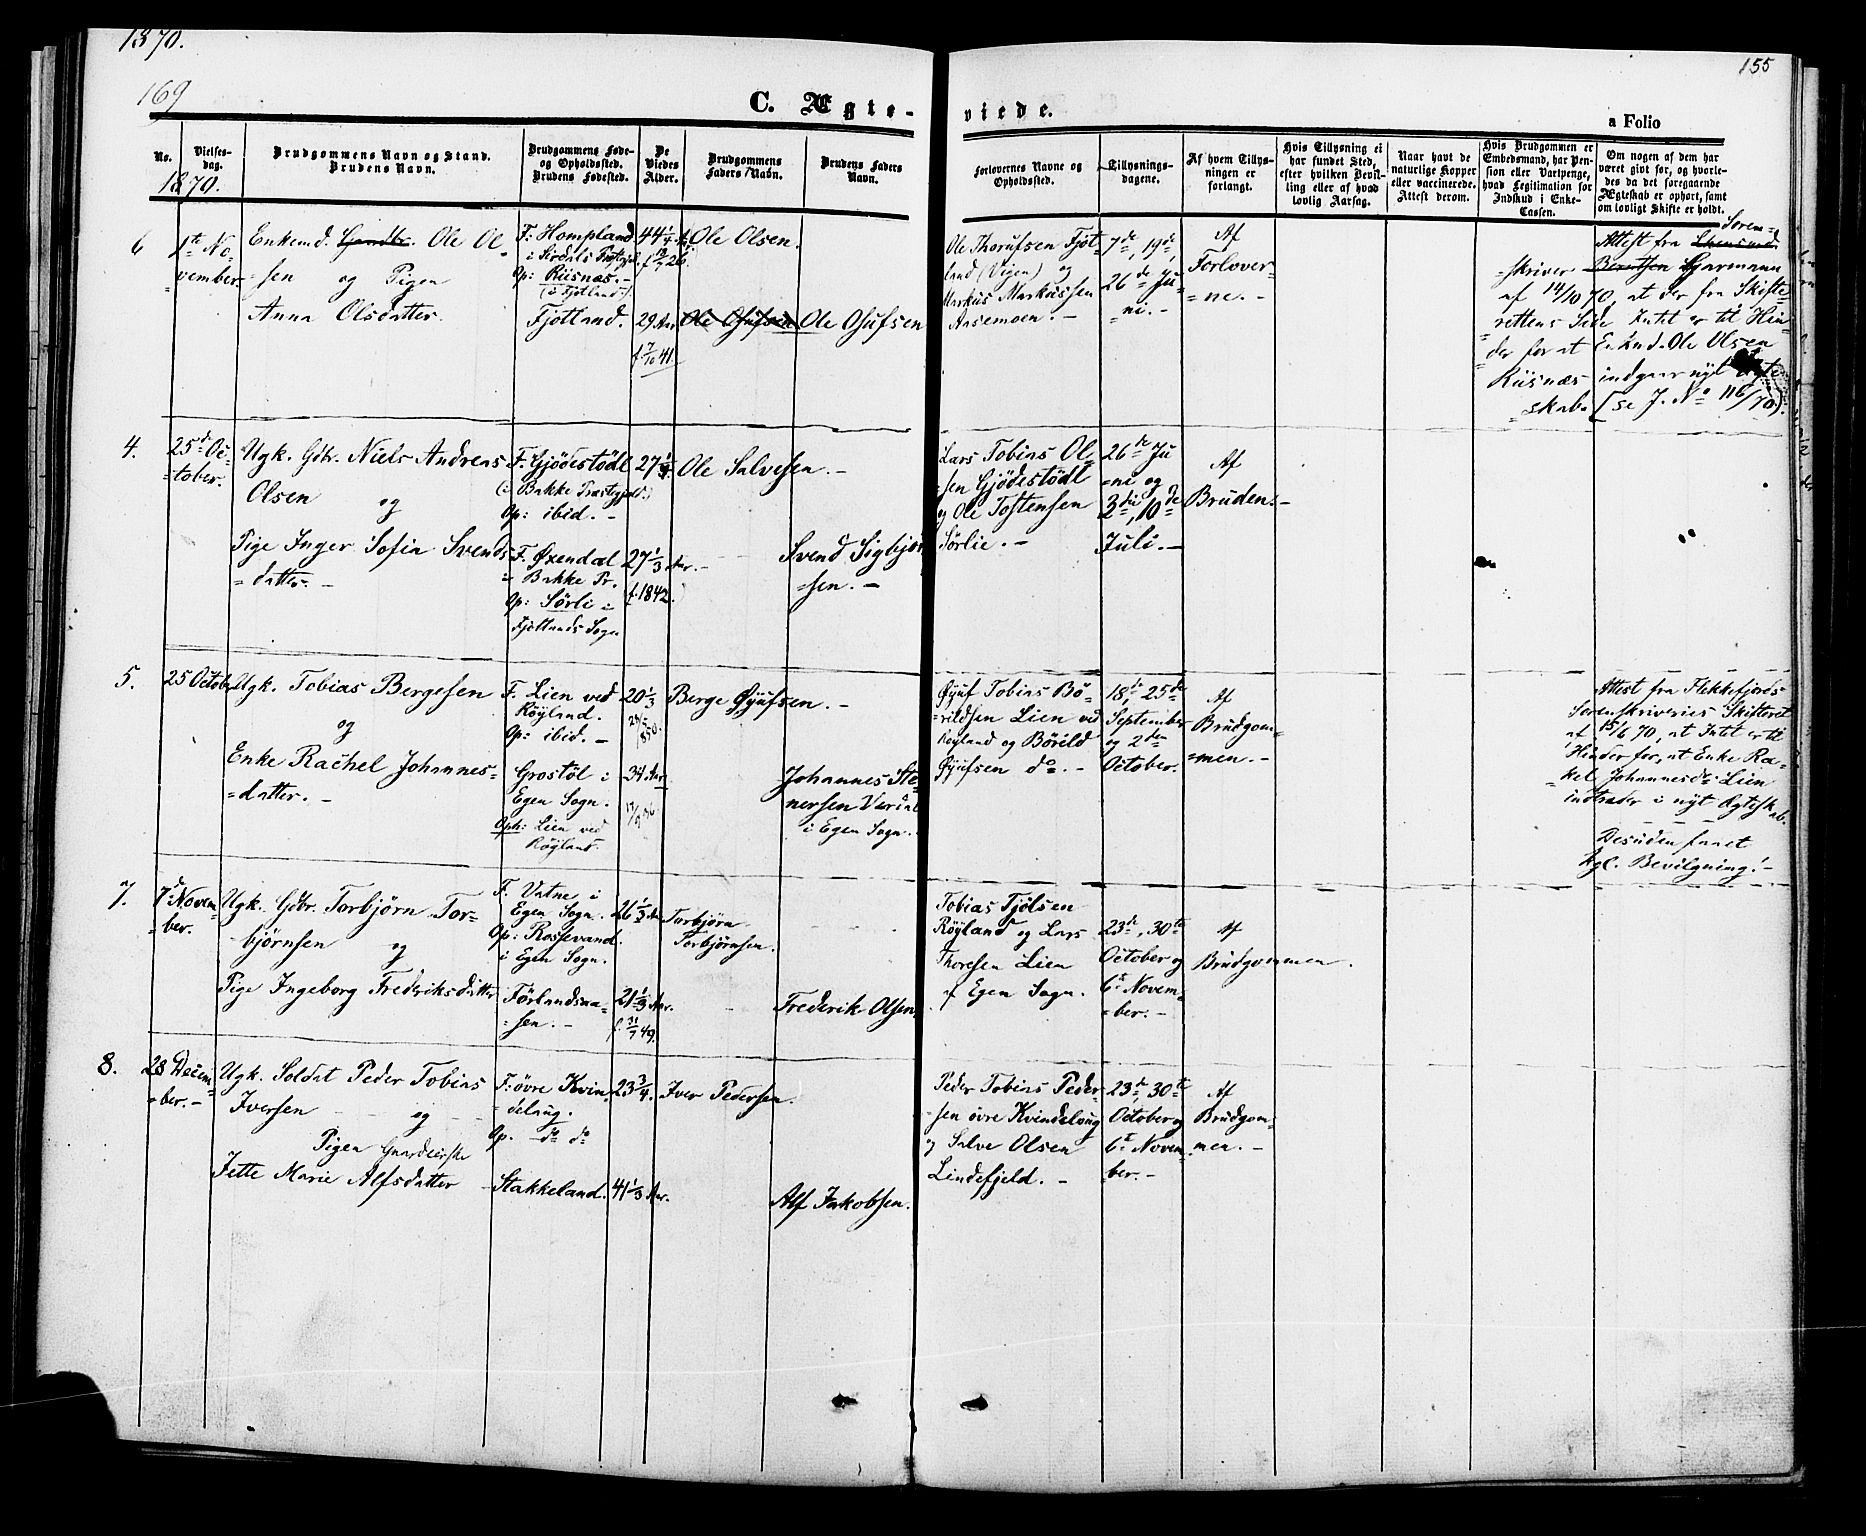 1870.
169
155
C. Ægte-
viede.
a Folio
No.
Vielses-
dag.
1870.
Brudgommens Navn og Stand.
Brudens Navn.
Brudgommens Føde-
og Opholdssted.
Brudens Fødested.
De
Viedes
Alder.
Brudgommens
Faders Navn.
Brudens Faders
Navn.
Forlovernes Navne og
Opholdssted.
Tillysnings-
dagene.
Af hvem Tillys-
ningen er
forlangt.
Hvis Tillysning ei
har fundet Sted,
efter hvilken Bevil-
ling eller af hvad
lovlig Aarsag.
Naar havt de
naturlige Kopper
eller vaccinerede.
Attest derom.
Hvis Brudgommen er
Embedsmand, har Pen-
sion eller Vartpenge,
hvad Legitimation for
Indskud i Enke-
Cassen.
Om nogen af dem har
været gift før, og hvorle-
des da det foregaaende
Ægteskab er ophørt, samt
om lovligt Skifte er holdt.
6
1te No-
vember-
Enkemd. Gaardbr. Ole Ol-
sen og Pigen
Anna Olsdatter.
F: Hompland
i Sirdals Præstegjeld.
Op: Riisnæs.-
(i Fjotland.)
Fjotland.
44 1/4
29 Aar
f. 7/10 41.
Ole Olsen.
Ole Osufsen
Ole Osufsen
Ole Thorufsen Fjot-
land (Vigen) og
Markus Markussen
Aasemoen. -
7de, 19de,
26de Ju-
ni. -
Af
Forlover-
ne. -
Soren-
Attest fra
skriver Berntsen Gjarmann
af 14/10 70, at der fra Skifte-
rettens Side Intet er til Hin-
der for at Enkmd. Ole Olsen
Riisnæs indgaar nyt Ægte-
skab. (se J. No 116/70).
4.
25de Oc-
tober.
Ugk. Gdbr. Niels Andreas
Olsen og
Pige Inger Sofia Svends-
datter. -
F. Gjödestödl
(i Bakke Præstegjeld.)
Op: ibid. -
F. Øxendal
i Bakke Pr.
Op: Sörli i
Fjotlands Sogn
27
27 1/3 Aar. -
f. 1842.
Ole Salvesen. -
Svend Sigbjörn-
sen. -
Lars Tobias Ol-
sen Gjödestödl
og Ole Tostensen
Sørlie. -
26de Ju-
ni og
3die, 10de
Juli. -
Af
Bruden. -
5.
25 October
Ugk. Tobias Bergesen
og
Enke Rachel Johannes-
datter. -
F. Lien ved
Röyland.
Op: ibid. -
Grostöl i
Egen Sogn.
Oph: Lien ved
Röyland.
20 1/3
34 Aar
Berge Øyufsen. -
Johannes Ste-
nersen
i Egen Sogn.
Øyuf Tobias Bö-
rildsen Lien ved
Röyland og Börild
Øyufsen do. -
18de, 25de
September
og 2den
October.
Af
Brudgom-
men. -
Attest fra Flekkefjords
Sorenskriveries Skifteret
af 15/6 70, at Intet er til
Hinder for, at Enke Ra-
kel Johannesdr. Lien
indtræder i nyt Ægteskab.
Desuden faaet
kgl. Bevilgning! -
7.
7de Novem-
ber.
Ugk. Gdbr. Torbjörn Tor-
björnsen og
Pige Ingeborg Frederiksdatter
F. Vatne i
Egen Sogn.
Op: Rossevand
i Egen Sogn.
Førlandsaa-
sen. -
26 1/3 Aar
21 1/3 Aar.
Torbjörn
Torbjörnsen.
Frederik Olsen.
Tobias Tjölsen
Röyland og Lars
Thoresen Lien
af Egen Sogn.
23de, 30te
October og
6te Novem-
ber. -
Af
Brudgommen.
8.
28 Decem-
ber. -
Ugk. Soldat Peder Tobias
Iversen og
Pigen Gaardeierske
Jette Marie Alfsdatter
F: övre Kvin-
delaug.
Op. do do
Stakkeland.
23 3/4.
41 1/3 Aar.
Iver Pedersen.
Alf Jakobsen.
Peder Tobias Peder-
sen övre Kvindelaug
og Salve Olsen
Lindefjeld. -
23de, 30te
October og
6te Novem-
ber. -
Af
Brudgom-
men. -